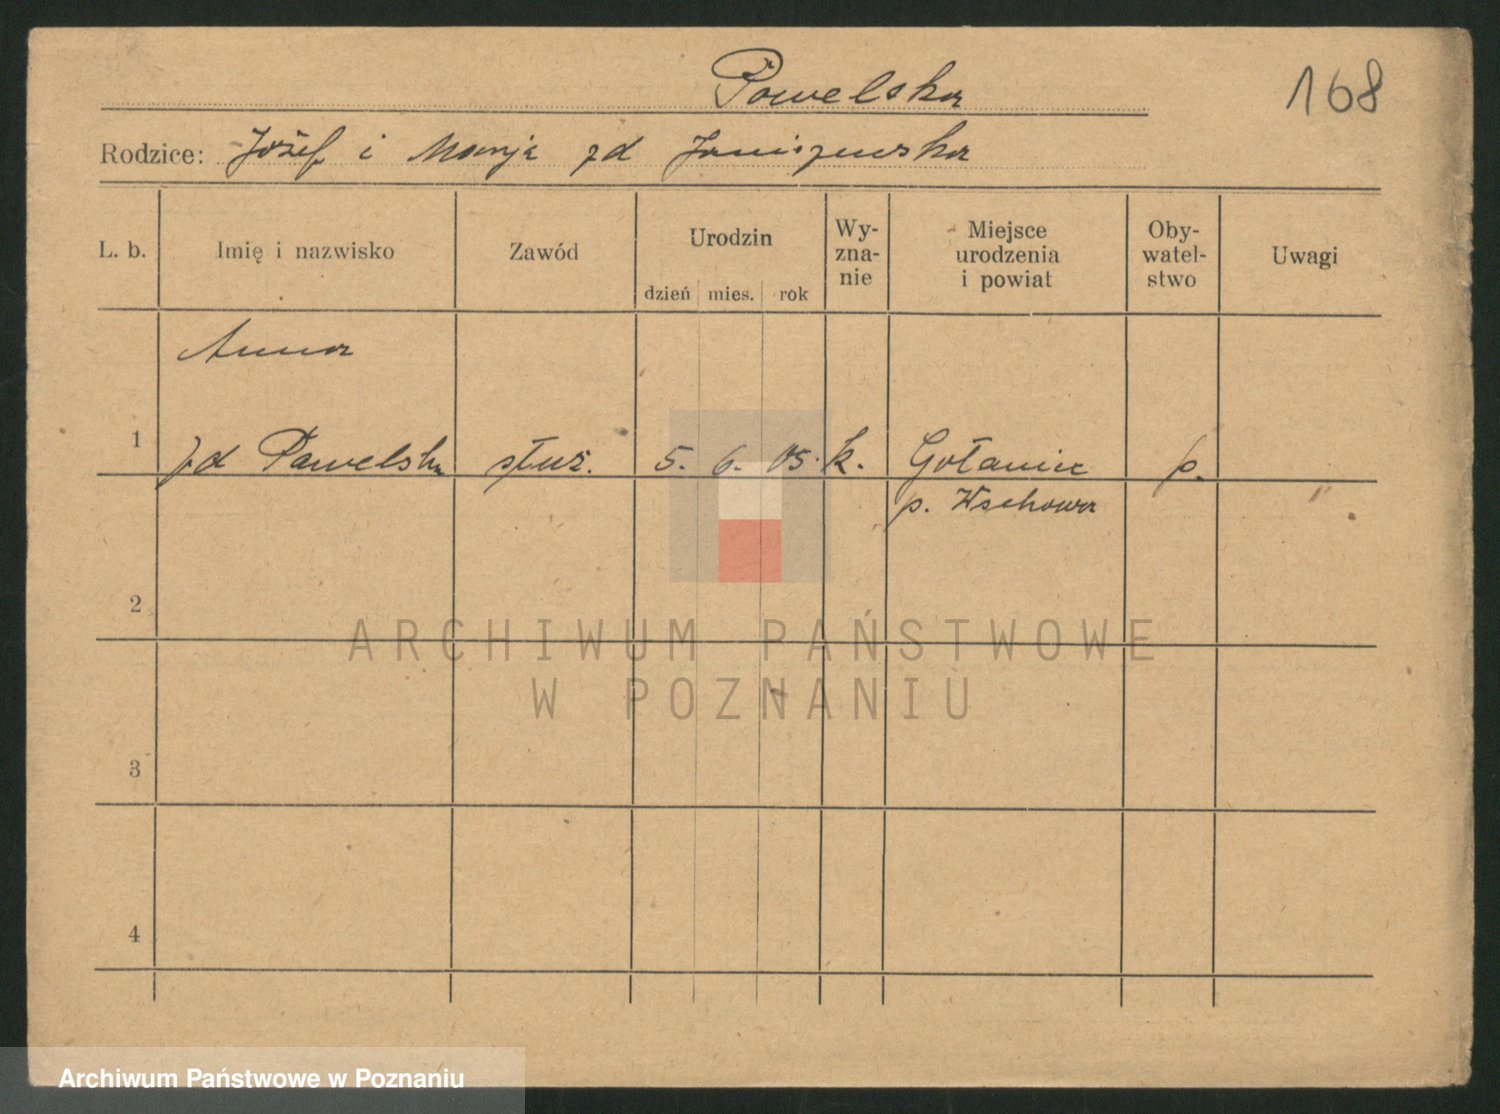 Pawelska
168
Rodzice: Józef i Marja zd Janiszewska
L. b.
Imię i nazwisko
Zawód
Urodzin
dzień mies. rok
Wy-
zna-
nie
Miejsce
urodzenia
i powiat
Oby-
watel-
stwo
Uwagi
Anna
1 zd Pawelska służ. 5. 6. 05. k. Gołanice p.
p. Wschowa
2
ARCHIWUM PAŃSTWOWE
W POZNANIU
3
4
Archiwum Państwowe w Poznaniu